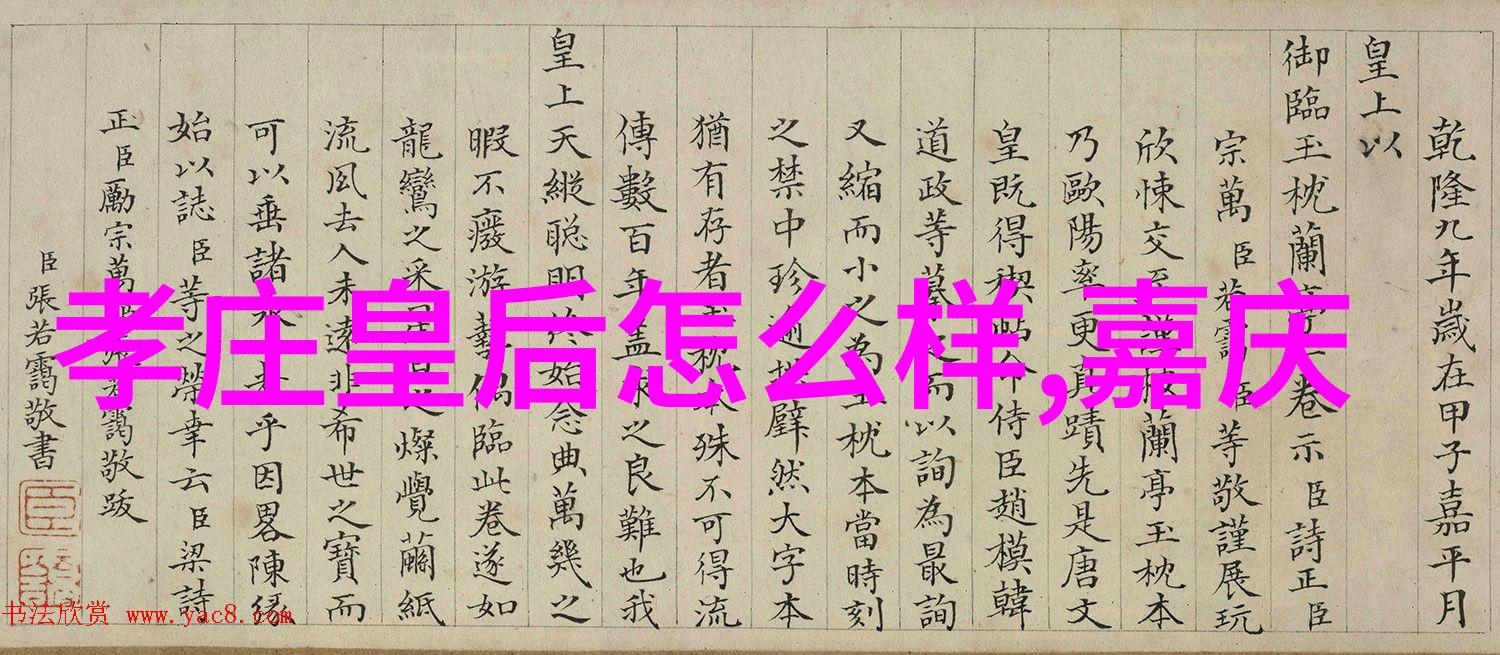 乾隆九年歲在甲子嘉平月
皇上以
御臨玉枕蘭亭一卷示臣詩正臣
宗萬臣若靄臣等敬謹展玩
欣悚交至謹按蘭亭玉枕本
乃歐陽率更真蹟先是唐文
皇既得稧帖命侍臣趙模韓
道政等摹之而以詢為最詢
又縮而小之為玉枕本當時刻
之禁中珍逾拱璧然大字本
猶有存者玉枕本殊不可得流
傳數百年蓋求之良難也我
皇上天縱聰明終始念典萬幾之
暇不癈游藝偶臨此卷遂如
龍鸞之采星日之燦覺繭紙
流風去人未遠非希世之寶而
可以垂諸永乎因畧陳緣
始以誌臣等之榮幸云臣梁詩
正臣勵宗萬臣張若靄敬跋
臣張若靄敬書
孝庄皇后怎么样,嘉庆
书法欣赏 www.yac8.com